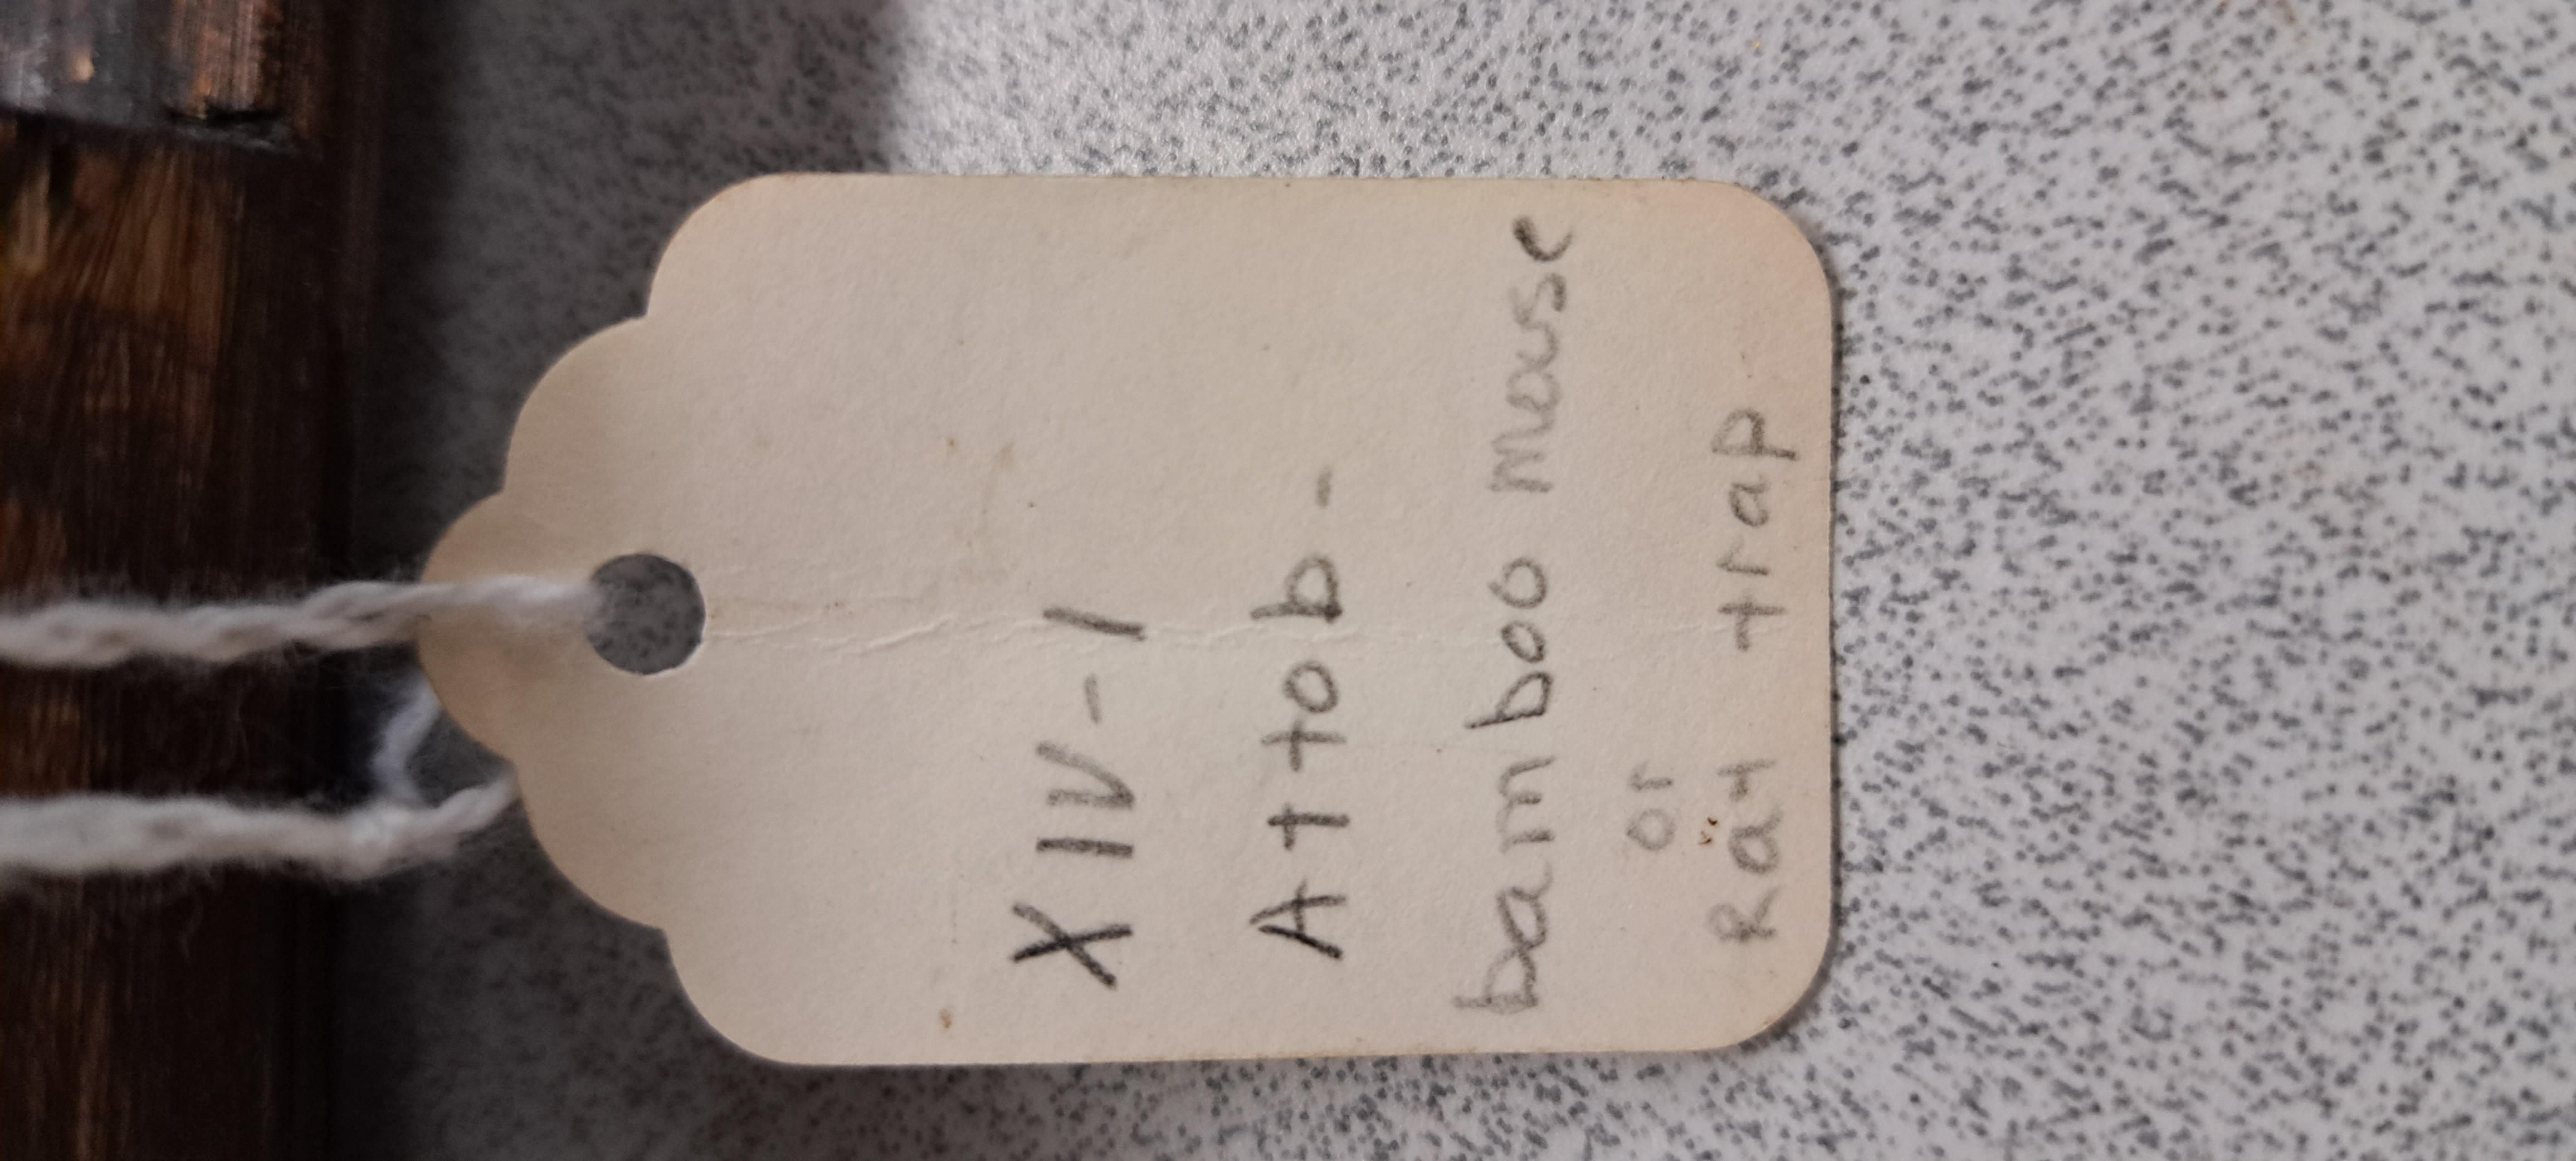 XIV-1
Attob-
bamboo mouse
or
Rat trap